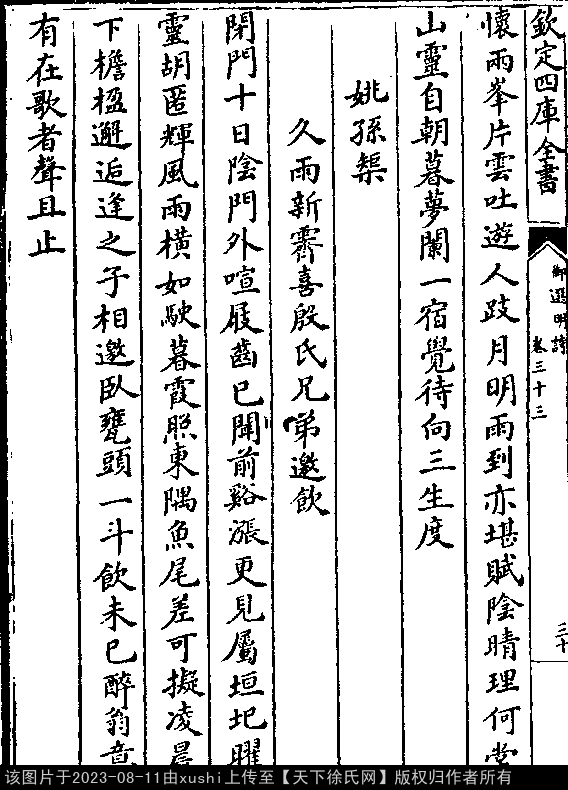 欽定四庫全書
御選明詩
卷三十三
三十
懷雨峯片雲吐遊人跂月明雨到亦堪賦陰晴理何常
山靈自朝暮夢闌一宿覺待向三生度
姚孫榘
久雨新霽喜殷氏兄弟邀飲
閉門十日陰門外喧屐齒已聞前谿漲更見屬垣圮曜
靈胡匿輝風雨橫如駛暮霞照東隅魚尾差可擬凌晨
下檐楹邂逅逢之子相邀臥甕頭一斗飲未已醉翁意
有在歌者聲且止
该图片于2023-08-11由xushi上传至【天下徐氏网】版权归作者所有